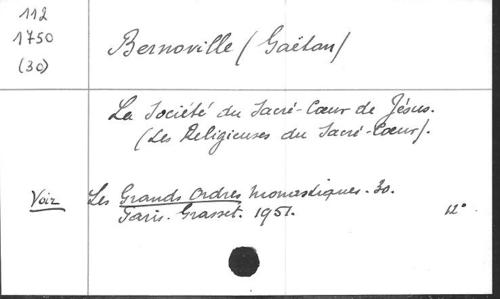 112
1750
(30)
Bernoville (Gaëtan)
La Société du Sacré-Cœur de Jésus.
(Les Religieuses du Sacré-Cœur).
Voir Les Grands Ordres monastiques. 30.
Paris. Grasset. 1951. 12°